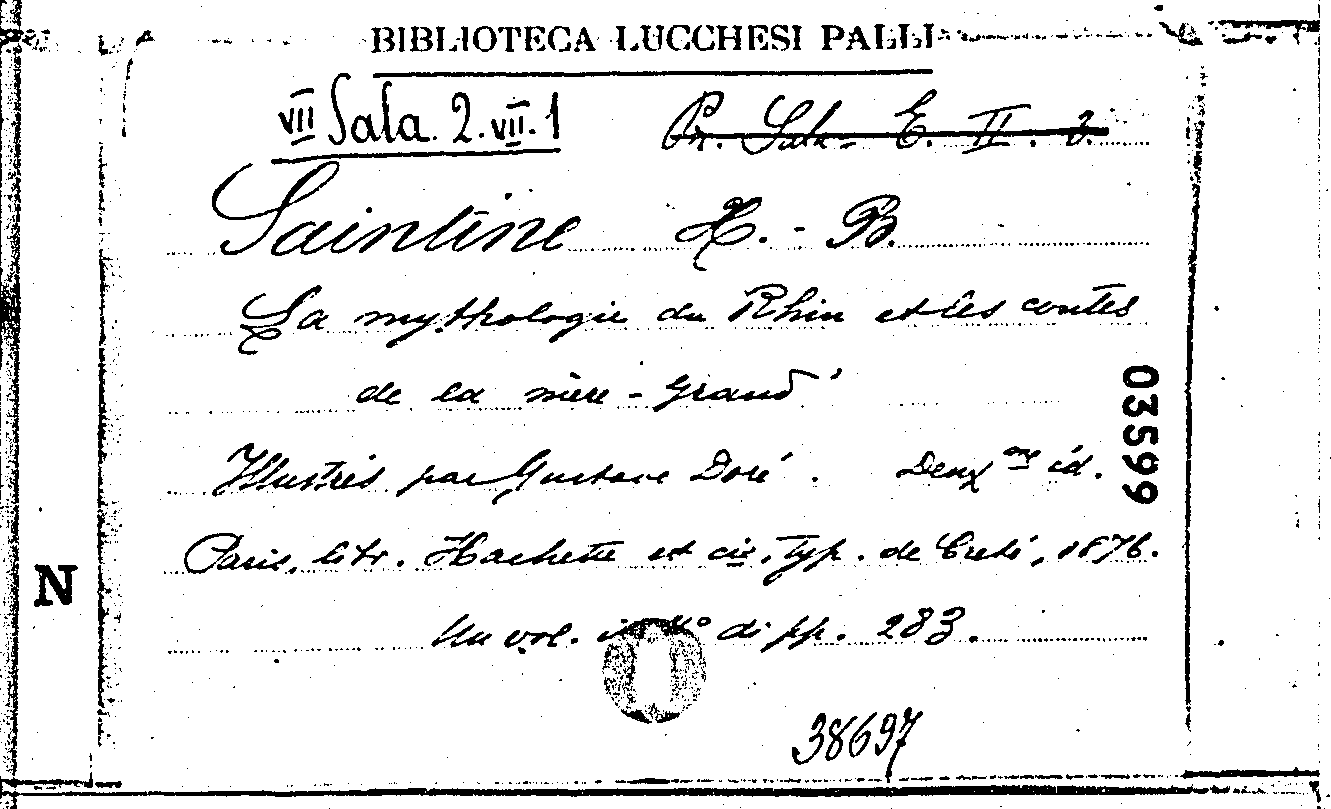 BIBLIOTECA LUCCHESI PALLI
VII Sala. 2. VII. 1 Pr. Sala E. II. 3.
Saintine X. - B.
La mythologie du Rhin et les contes
de la mère-Grand'
Illustrés par Gustave Doré. Deux me éd.
Paris, libr. Hachette et cie, Typ. de Creté, 1876.
Un vol. di pp. 283.
38697
03599
N